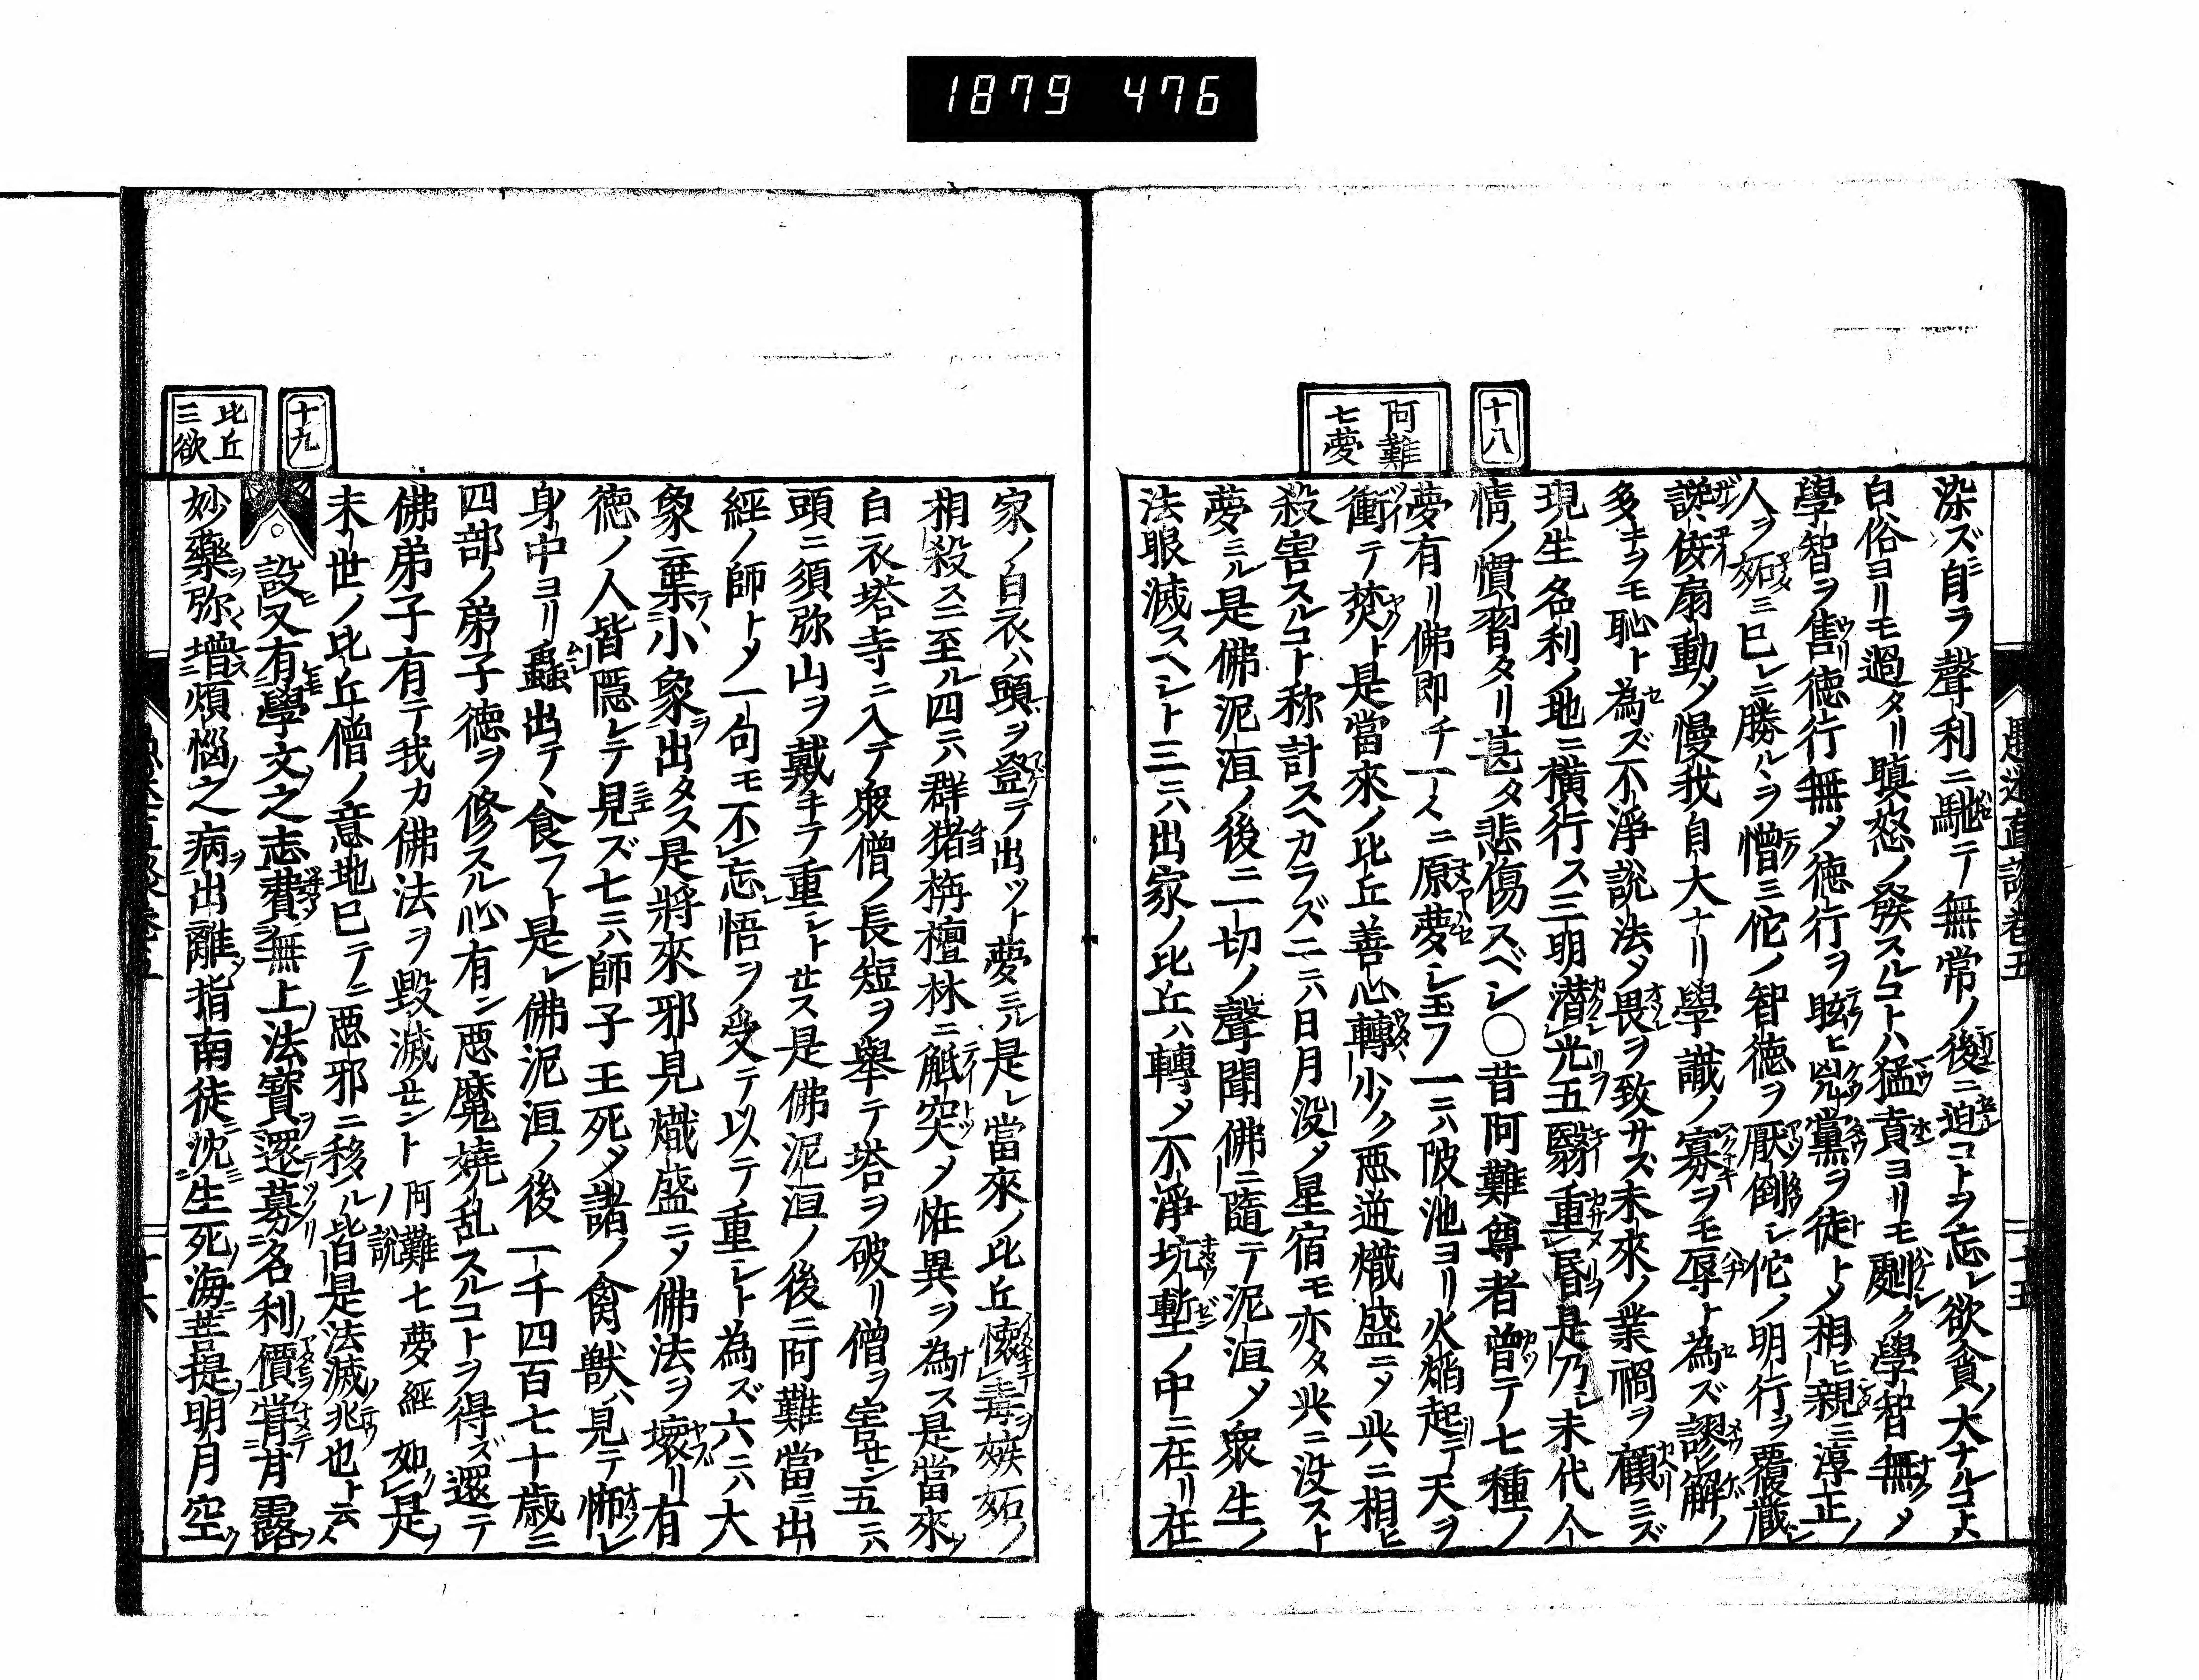 1879 476
十八
阿難
七夢
染ズ自ラ聲利ニ馳テ無常ノ後ニ迫コトヲ忘レ欲貪ノ大ナルコト
白俗ヨリモ過タリ瞋怒ノ發スルコトハ猛賁ヨリモ劇ク學智無メ
學智ヲ售リ徳行無メ徳行ヲ眩ヒ凶黨ヲ徒トメ相ヒ親ミ淳正ノ
人ヲ妬ミ已レニ勝ルヽヲ憎ミ佗ノ智徳ヲ厭倒シ佗ノ明行ヲ覆藏シ
依扇動メ慢我自大ナリ學識ノ寡ヲモ辱ト為ズ謬解ノ
多キヲモ恥ト為ズ不淨説法メ畏ヲ致サズ未來ノ業禍ヲ顧ミズ
現生名利ノ地ニ横行ス三明潜光五翳重昏是乃レ末代人
情ノ慣習タリ甚タ悲傷スベシ〇昔阿難尊者曾テ七種ノ
夢有リ佛即チ一一ニ原夢シ玉フ一ニハ陂池ヨリ火焔起テ天ヲ
衝テ焚ト是當來ノ比丘善心轉少ク悪逆熾盛ニメ共ニ相ヒ
殺害スルコト称計スヘカラズ二ニハ日月没メ星宿モ亦タ共ニ没スト
夢ミル是佛泥洹ノ後ニ一切ノ聲聞佛ニ隨テ泥洹メ衆生ノ
法眼滅スヘシト三ニハ出家ノ比丘ハ轉メ不淨坑塹ノ中ニ在リ在
十九
比丘
三欲
家ノ白衣ハ頭ヲ登テ出ツト夢ミル是レ當來ノ比丘懐毒嫉妬ノ
相殺スニ至ル四ニハ群猪栴檀林ニ觝突メ恠異ヲ為ス是當來ノ
白衣塔寺ニ入テ衆僧ノ長短ヲ舉テ塔ヲ破リ僧ヲ害セン五ニハ
頭ニ須弥山ヲ戴キテ重シト セス是佛泥洹ノ後ニ阿難當ニ出
經ノ師トメ一句モ不忘悟ヲ受テ以テ重シト為ズ六ニハ大
象ニ棄テ小象ヲ出タス是將來邪見熾盛ニメ佛法ヲ壞リ有
徳ノ人皆隠レテ見ズ七ニハ師子王死メ諸ノ禽獣ハ見テ怖レ
身中ヨリ蟲出テヽ食フト是レ佛泥洹ノ後一千四百七十歳ニ
四部ノ弟子徳ヲ修スル心有ン悪魔嬈乱スルコトヲ得ズ還テ
佛弟子有テ我カ佛法ヲ毀滅セント 阿難七夢經ノ説 如是ノ
末世ノ比丘僧ノ意地已テニ悪邪ニ移ル皆是法滅ノ兆也ト云ヘ
設又有學文之志費無上法寶還募名利價甞甘露
妙藥弥増煩惱之病出離指南徒沈生死海菩提明月空